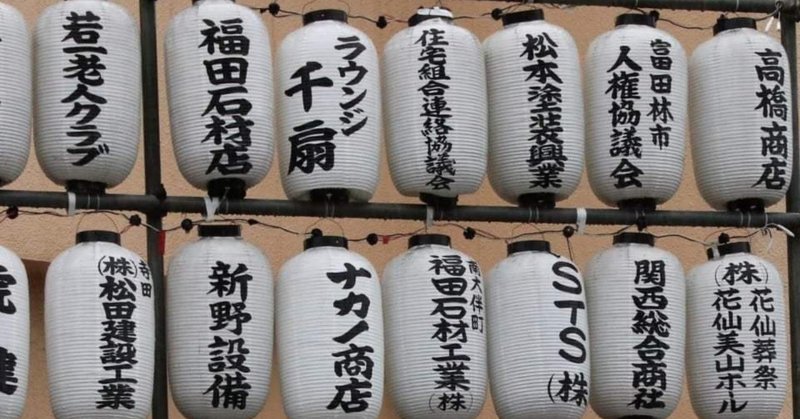 若一老人クラブ
福田石材店
ラウンジ
千扇
住宅組合連絡協議会
松本塗装興業
富田林市
人権協議会
高橋商店
寺田
(株)松田建設工業
新野設備
ナカノ商店
南大伴町
福田石材工業(株)
STS(株)
関西総合商社
(株)花仙葬祭
花仙美山ホル